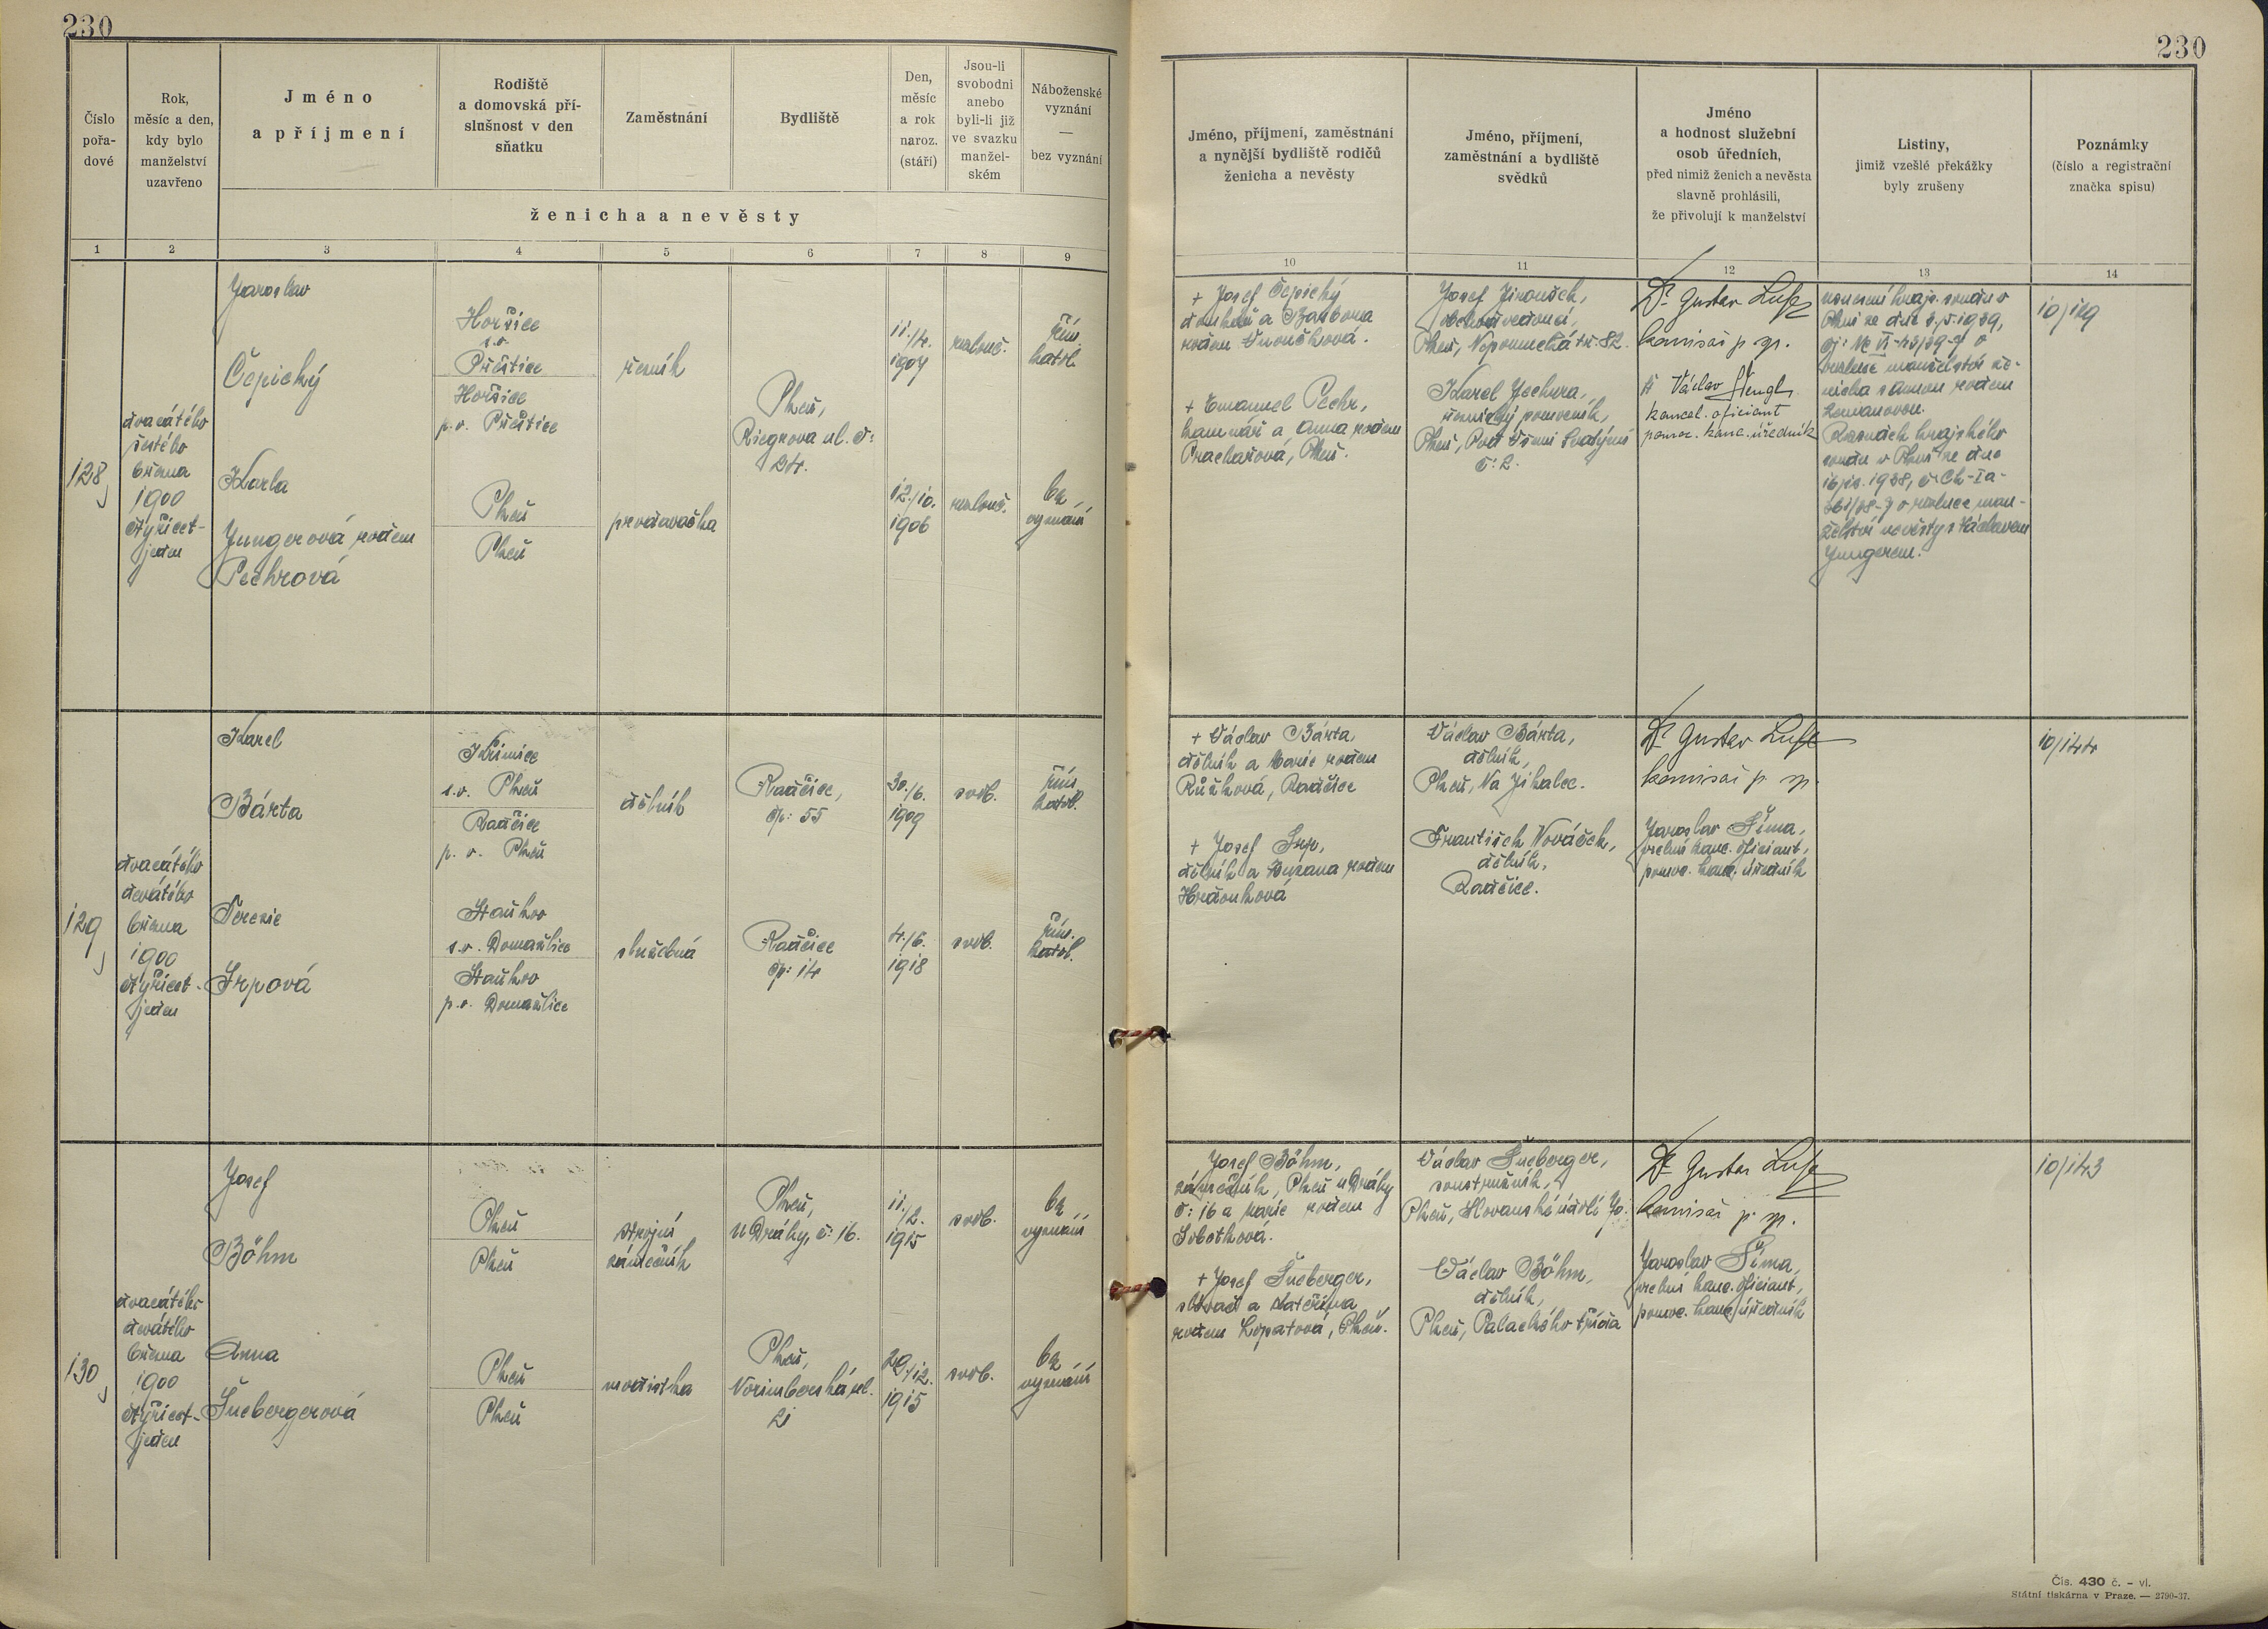 230
230
Číslo
pořa-
dové
Rok,
měsíc a den,
kdy bylo
manželství
uzavřeno
Jméno
a příjmení
Rodiště
a domovská pří-
slušnost v den
sňatku
Zaměstnání
Bydliště
Den,
měsíc
a rok
naroz.
(stáří)
Jsou-li
svobodni
anebo
byli-li již
ve svazku
manžel-
ském
Náboženské
vyznání
—
bez vyznání
ženicha a nevěsty
1 2 3 4 5 6 7 8 9
Jméno, příjmení, zaměstnání
a nynější bydliště rodičů
ženicha a nevěsty
Jméno, příjmení,
zaměstnání a bydliště
svědků
Jméno
a hodnost služební
osob úředních,
před nimiž ženich a nevěsta
slavně prohlásili,
že přivolují k manželství
Listiny,
jimiž vzešlé překážky
byly zrušeny
Poznámky
(číslo a registrační
značka spisu)
10 11 12 13 14
128
dvacátého
šestého
března
1900
čtyřicet-
jeden
Jaroslav
Čepický
Horšice
s.o.
Přeštice
Horšice
p.o. Přeštice
řezník
Plzeň,
Riegrova ul. č:
24.
11./4.
1904
rozlouč.
řím.
katol.
Karla
Jungerová rodem
Pechrová
Plzeň
Plzeň
prodavačka
12./10.
1906
rozlouč.
bez
vyznání
+ Josef Čepický
a Barbora
rodem
+ Emanuel Pechr,
a Anna rodem
Prachařová, Plzeň.
Josef Jiroušek,
obchodvedoucí,
Plzeň, Nepomucká tř. 82.
Karel Jechura,
řeznický pomocník,
Plzeň, Pod Všemi Svatými
č: 2.
Dr Gustav
komisař p. sp.
Václav Šlengl
kancel. oficiant
pomoc. kanc. úředník
usnesení krajs. soudu v
Plzni ze dne 3./5. 1939,
o
rozluce manželství že-
nicha s Annou rodem
Zemanovou.
Rozsudek krajského
soudu v Plzni ze dne
1938, č Ck-Ia-
o rozluce man-
želství nevěsty s Václavem
Jungerem.
10/129
129
dvacátého
devátého
března
1900
čtyřicet-
jeden
Karel
Bárta
Křimice
s.o. Plzeň
Radčice
p. o. Plzeň
dělník
Radčice,
čp: 55
30./6.
1909
svob.
řím.
katol.
Terezie
Srpová
Staňkov
s.o. Domažlice
Staňkov
p.o. Domažlice
služebná
Radčice
čp: 14
4./6.
1918
svob.
řím.
katol.
+ Václav Bárta
dělník a Marie rodem
Růžková, Radčice
+ Josef Srp,
dělník a Zuzana rodem
Hrdonková
Václav Bárta,
dělník,
Plzeň, Na Jíkalce.
František Nováček,
dělník,
Radčice.
Dr Gustav
komisař p. sp.
Jaroslav Šíma,
vrchní kanc. oficiant,
pomoc. kanc. úředník
10/144
130
dvacátého
devátého
března
1900
čtyřicet-
jeden
Josef
Böhm
Plzeň
Plzeň
strojní
zámečník
Plzeň,
U Dráhy, č: 16.
11./2.
1915
svob.
bez
vyznání
Anna
Šnebergerová
Plzeň
Plzeň
modistka
Plzeň,
Norimberská ul.
21
29./12.
1915
svob.
bez
vyznání
Josef Böhm,
zámečník, Plzeň U Dráhy
č: 16 a Marie rodem
Sobotková.
+ Josef Šneberger,
slévač a Kateřina
rodem Lopatová, Plzeň.
Václav Šneberger,
soustružník,
Plzeň, Slovanské údolí 70.
Václav Böhm,
dělník,
Plzeň, Palackého třída
Dr Gustav
komisař p. sp.
Jaroslav Šíma,
vrchní kanc. oficiant,
pomoc. kanc. úředník
10/143
Čís. 430 č. - vl.
Státní tiskárna v Praze. — 2790-37.